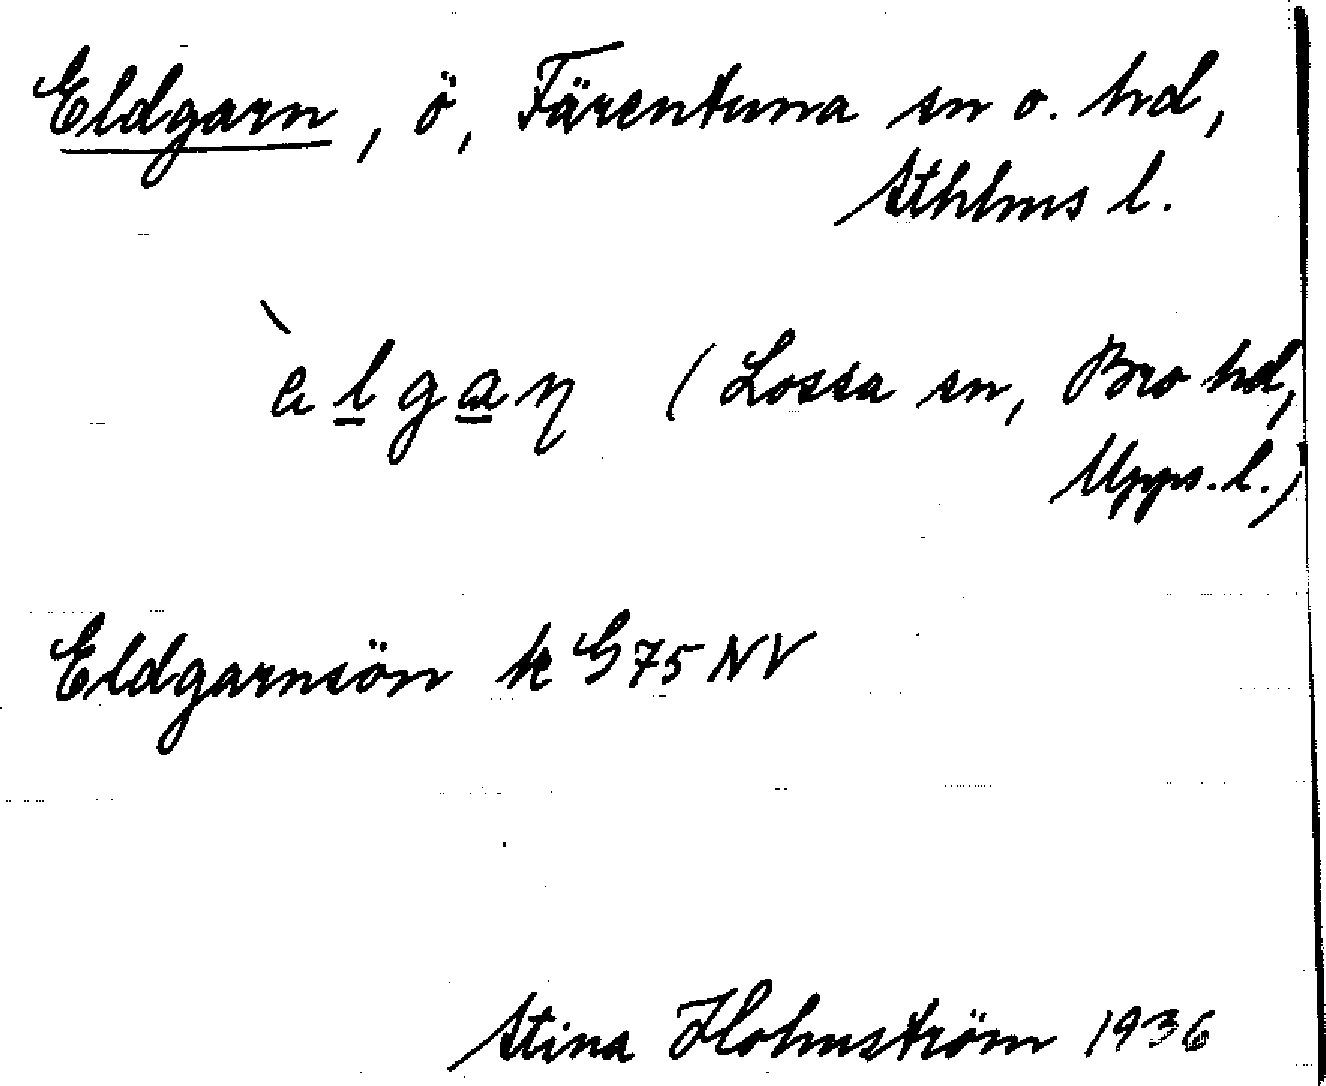 Eldgarn, ö, Färentuna sn o. hd,
Sthlms l.
`elgaɳ (Lossa sn, Bro hd,
Upps. l.)
Eldgarnsön k G 75 NV
Stina Holmström 1936